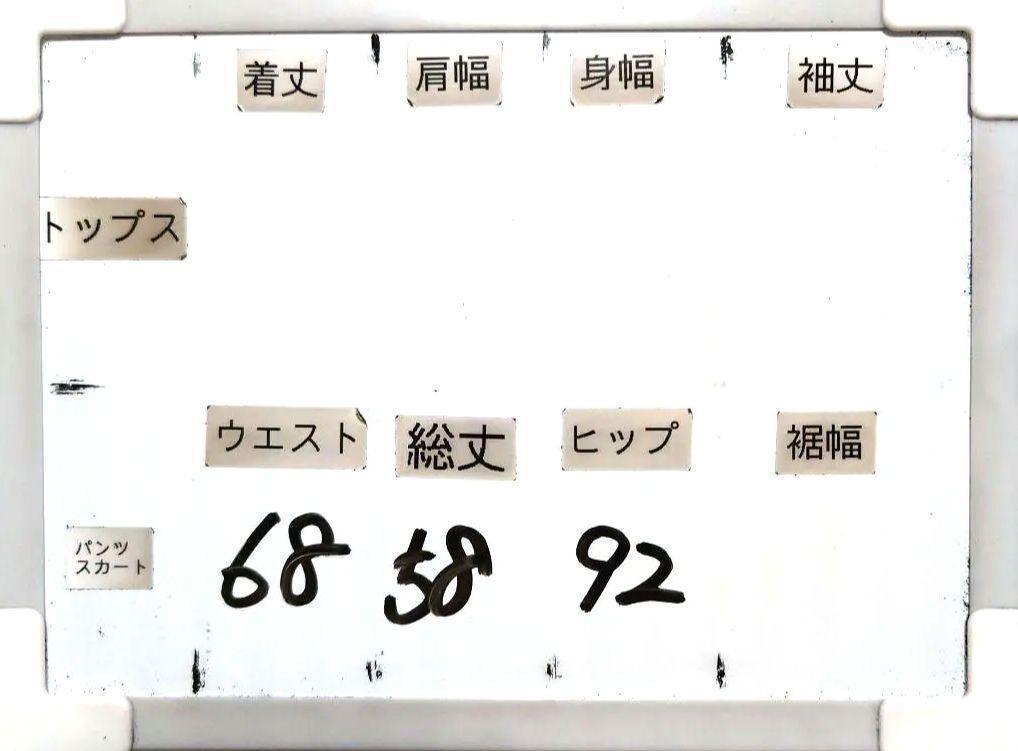 着丈 肩幅 身幅 袖丈
トップス
ウエスト 総丈 ヒップ 裾幅
パンツ
スカート
68 58 92